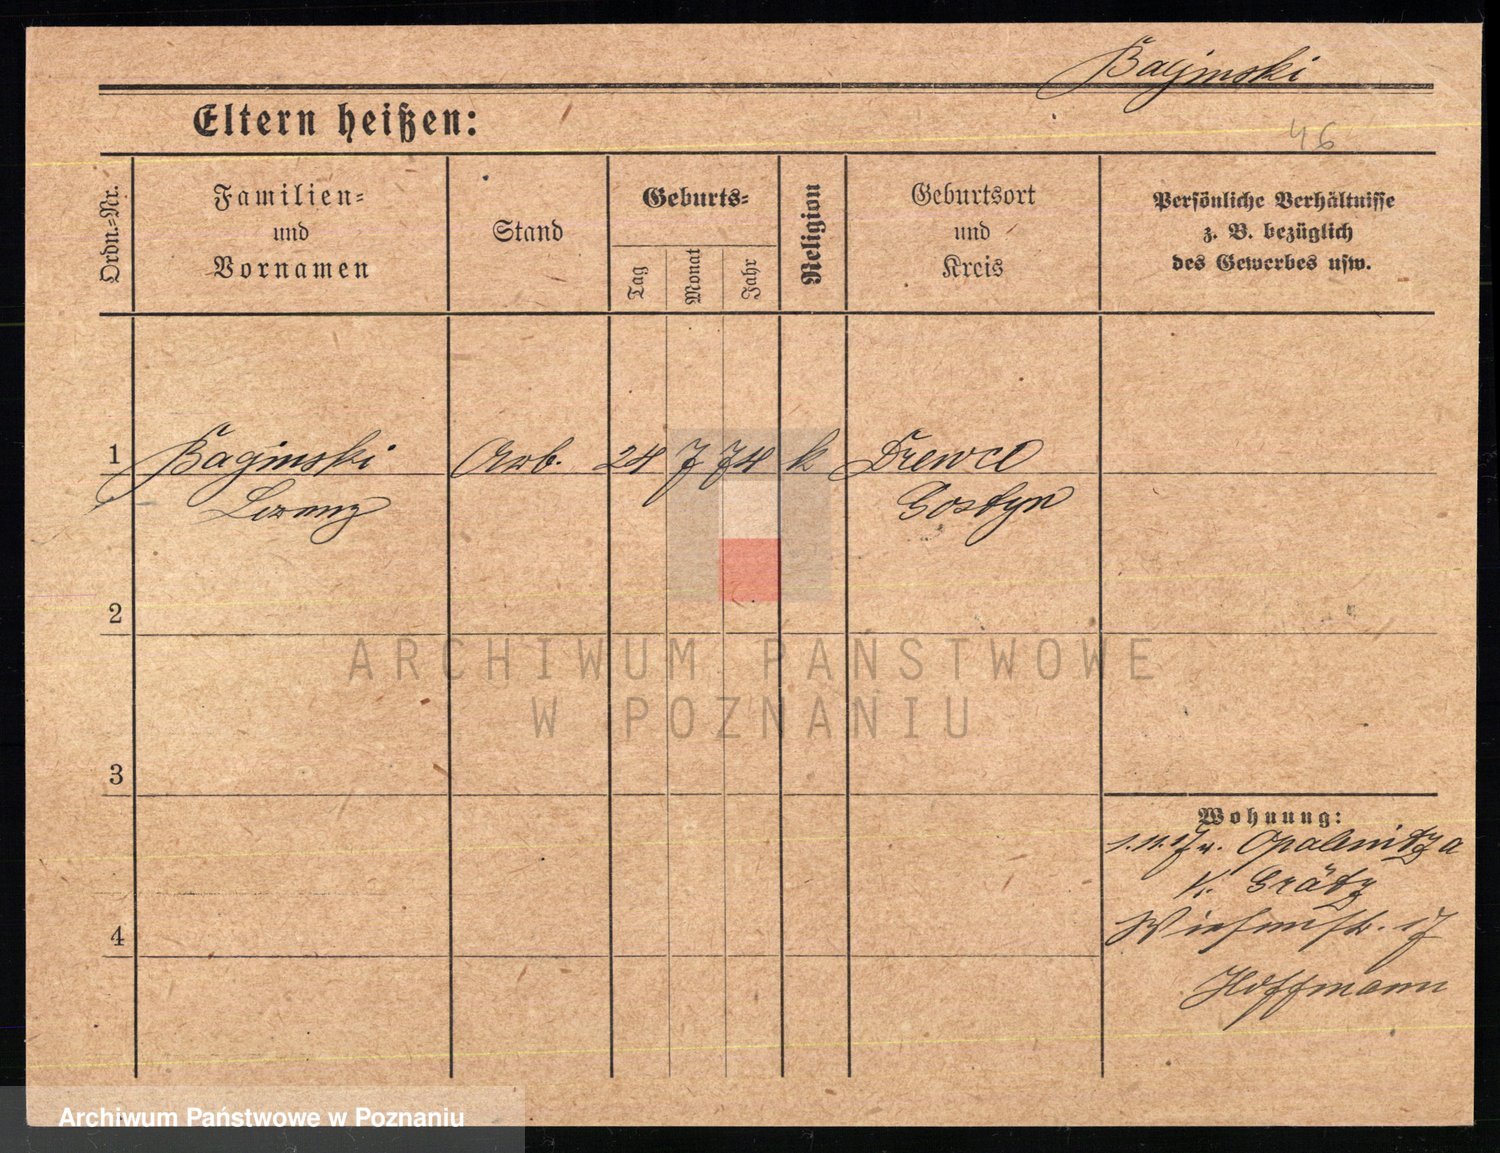 Baginski
Eltern heißen:
46
Ordn.-Nr.
Familien-
und
Vornamen
Stand
Geburts-
Tag
Monat
Jahr
Religion
Geburtsort
und
Kreis
Persönliche Verhältnisse
z. B. bezüglich
des Gewerbes usw.
1 Baginski Arb. 24 7 74 k Drewce
Gostyn
2
ARCHIWUM PAŃSTWOWE
W POZNANIU
3
Wohnung:
1.11.17 v. Opalenitza
K. Grätz
4
Wiesenstr. 17
Hoffmann
Archiwum Państwowe w Poznaniu